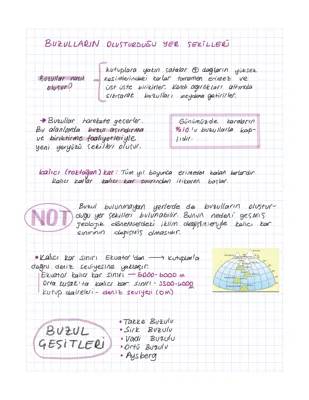 BUZULLARIN OLUŞTURDUĞU YER ŞEKİLLERİ
Buzullar nasıl oluşur?
kutuplara yakın sahalar @ dağların yüksek
kesimlerindeki karlar tamamen erimez ve
üst üste birikirler. Kendi ağırlıkları altında
sıkışarak buzulları meydana getirirler.
→ Buzullar harekete geçerler.
Bu alanlarda buzul aşındırma
ve biriktirme faaliyetleriyle
yeni yeryüzü şekilleri oluşur.
Günümüzde karaların
%10'u buzullarla kap-
lıdır.
Kalıcı (toktağan) kar: Tüm yıl boyunca erimeden kalan karlardır.
Kalıcı karlar kalıcı kar sınırından itibaren başlar.
NOT
Buzul bulunmayan yerlerde de buzulların oluştur-
duğu yer şekilleri bulunabilir. Bunun nedeni geçmiş
jeolojik dönemlerdeki iklim değişimleriyle kalıcı kar
sınırının değişmiş olmasıdır.
• Kalıcı kar sınırı Ekvator'dan → kutuplara
doğru deniz seviyesine yaklaşır.
Ekvator kalıcı kar sınırı → 5000-6000 m
Orta kuşakta kalıcı kar sınırı - 3500-4000
Kutup daireleri - deniz seviyesi (0M)
BUZUL
ÇEŞİTLERİ
• Takke Buzulu
• Sirk Buzulu
• Vadi Buzulu
• Örtü Buzulu
• Aysberg